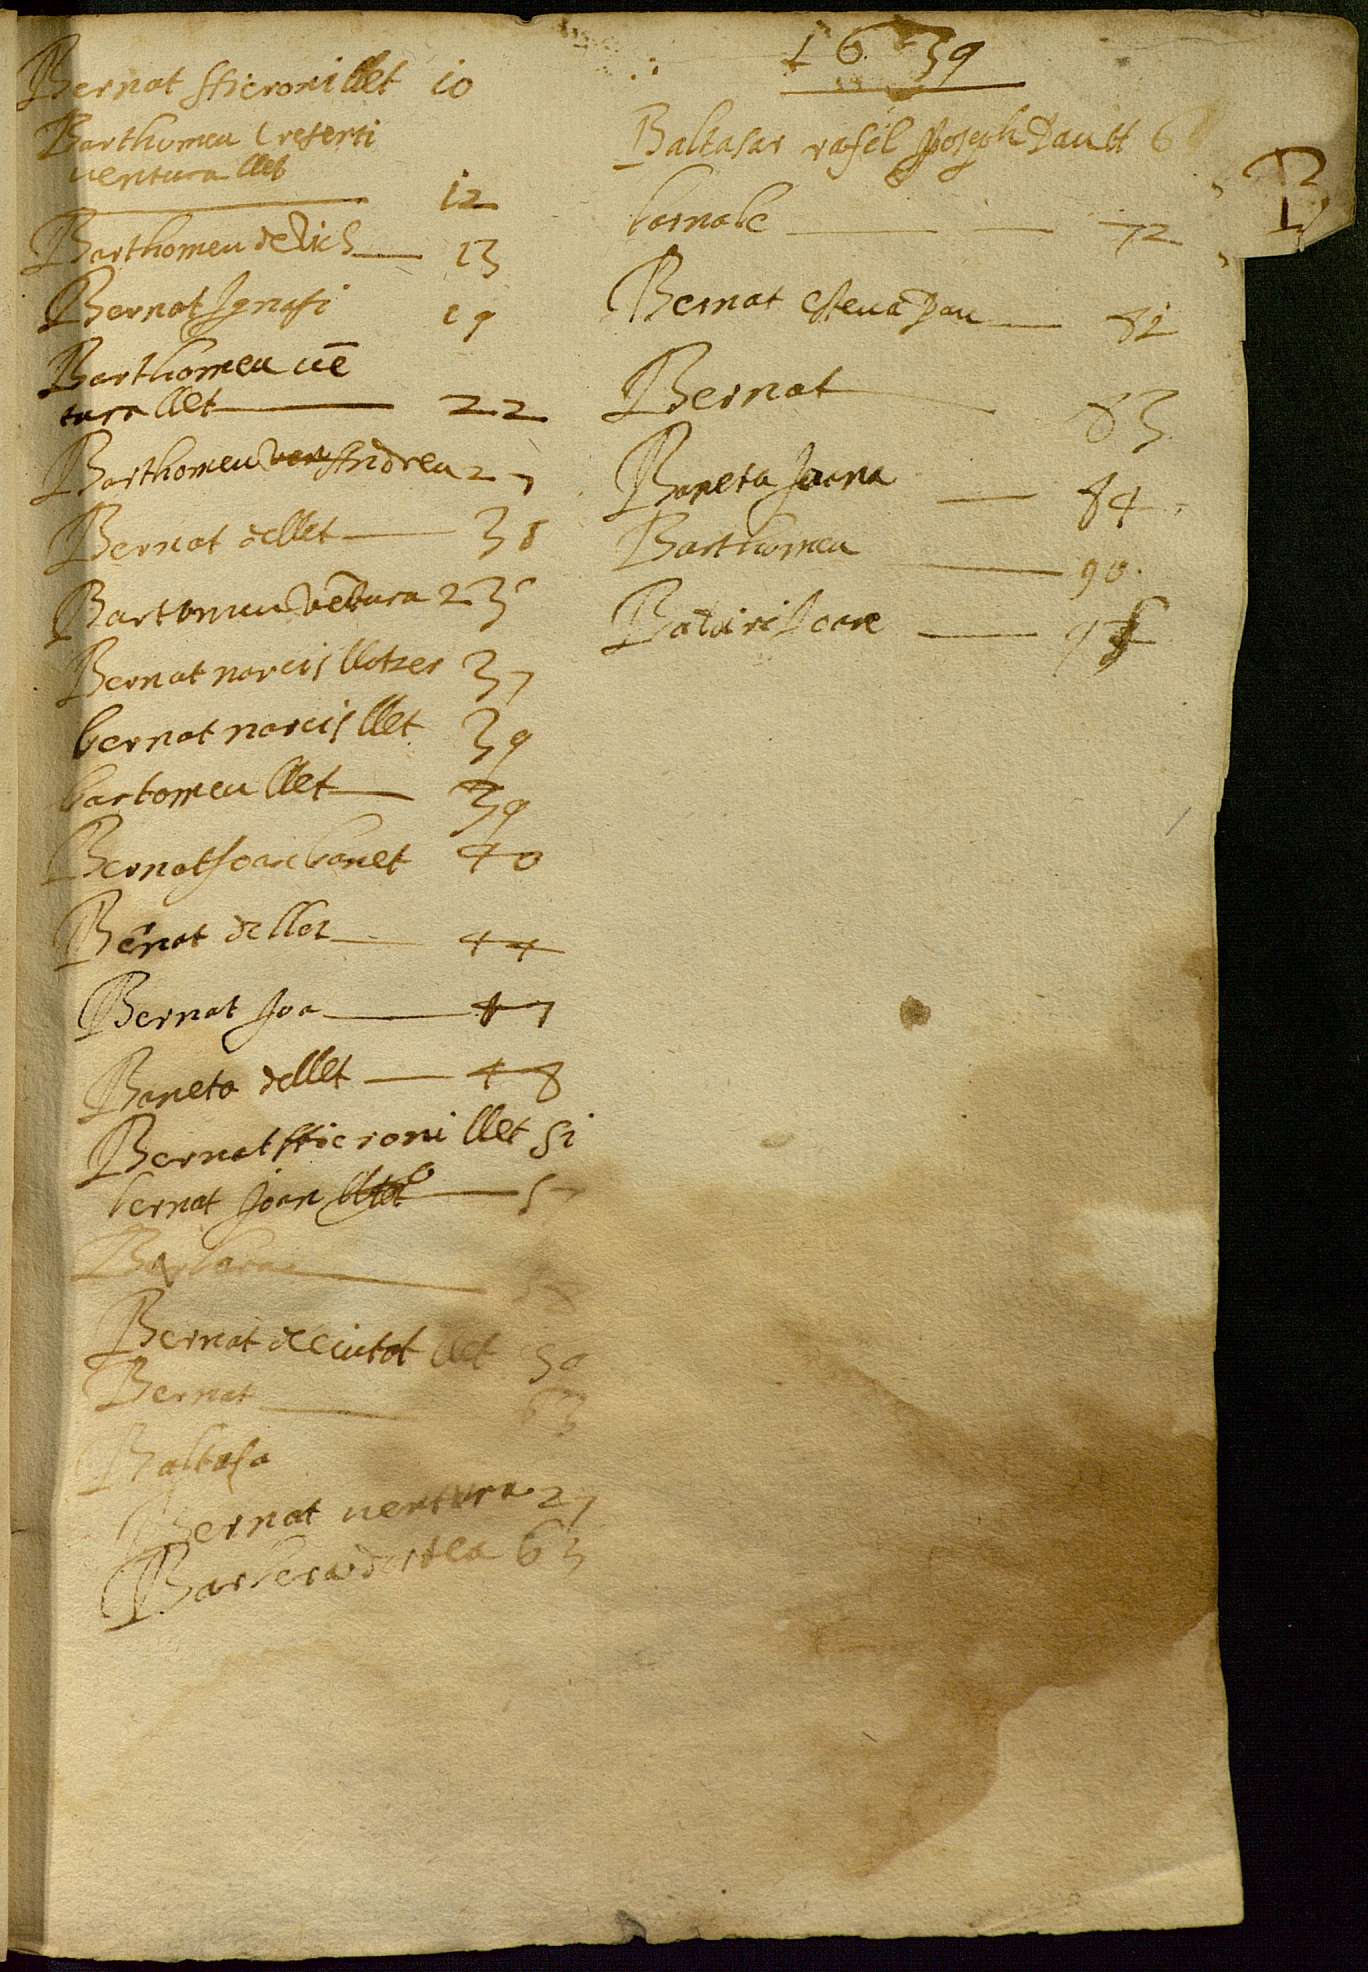 Bernat Hieroni llet 10
Barthomeu Cresenti
ventura llet 12
Barthomeu de Vich 13
Bernat Ignasi 19
Barthomeu uē
tura llet 22
Barthomeu Andreu 27
Bernat de llet 38
Bartomeu Vētura 235
Bernat narcis llotzer 37
bernat narcis llet 39
bartomeu llet 39
Bernat Joan banet 40
Bernat de llet 44
Bernat Joa 47
Baneta de llet 48
Bernat Hieroni llet 51
bernat Joan 57
Barbara
Bernat de ciutat llet 59
Bernat 63
Baltasa
Bernat uentura 27
Barbera 63
1639
Baltasar rafel Joseph Pau tt 6
barnabe 72
Bernat esteua Pau 82
Bernat 83
Baneta Joana 84
Barthomeu 90
Joan
B